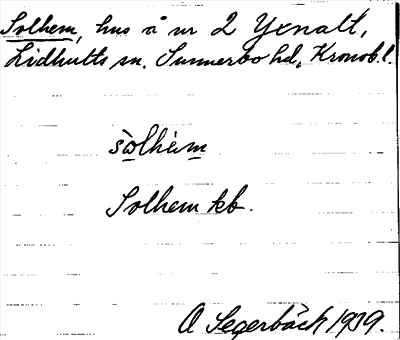 Solhem, hus å nr 2 Yxnalt,
Lidhults sn. Sunnerbo hd, Kronob. l.
sòlhèm
Solhem kb.
A Segerbäck 1939.